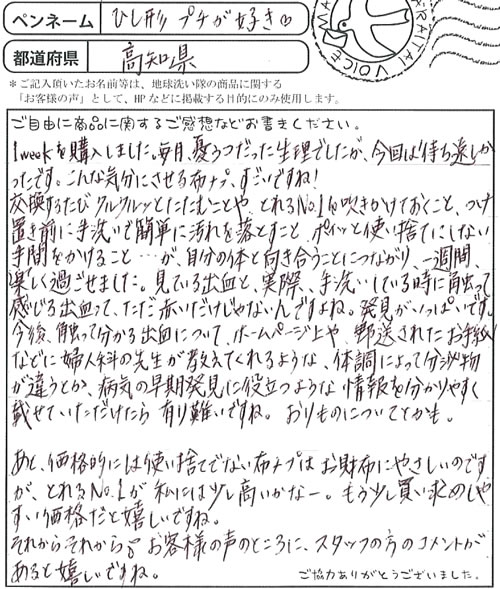 ペンネーム ひし形プチが好き♡
都道府県 高知県
＊ご記入頂いたお名前等は、地球洗い隊の商品に関する
「お客様の声」として、HPなどに掲載する目的にのみ使用します。
ご自由に商品に関するご感想などお書きください。
1weekを購入しました。毎月、憂うつだった生理でしたが、今回は待ち遠しか
ったです。こんな気分にさせる布ナプ、すごいですね！
交換するたびクルクルッとたたむことや、とれるNo.1を吹きかけておくこと、つけ
置き前に手洗いで簡単に汚れを落とすこと、ポイッと使い捨てにしない
手間をかけること…が、自分の体と向き合うことにつながり、一週間、
楽しく過ごせました。見ている出血と、実際、手洗いしている時に触って
感じる出血って、ただ赤いだけじゃないんですよね。発見がいっぱいです。
今後、触って分かる出血について、ホームページ上や、郵送されたお手紙
などに婦人科の先生が教えてくれるような、体調によって分泌物
が違うとか、病気の早期発見に役立つような情報を分かりやすく
載せていただけたら有り難いですね。おりものについてとかも。
あと、価格的には使い捨てでない布ナプはお財布にやさしいのです
が、とれるNo.1が私には少し高いかなー。もう少し買い求めしや
すい価格だと嬉しいですね。
それからそれから お客様の声のところに、スタッフの方のコメントが
あると嬉しいですね。
ご協力ありがとうございました。